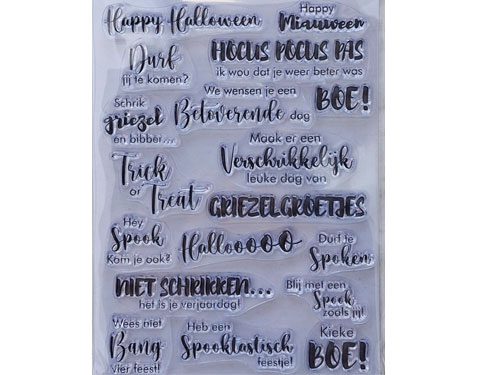 Happy Halloween
Happy
Miauween
Durf
jij te komen?
HOCUS POCUS PAS
ik wou dat je weer beter was
Schrik
griezel
en bibber...
We wensen je een
Betoverende dag
BOE!
Maak er een
Verschrikkelijk
leuke dag van
Trick
or
Treat
GRIEZELGROETJES
Hey
Spook
Kom je ook?
Hallooooo
Durf te
Spoken
NIET SCHRIKKEN...
het is je verjaardag!
Blij met een
Spook
zoals jij!
Wees niet
Bang
Vier feest!
Heb een
Spooktastisch
feestje!
Kieke
BOE!